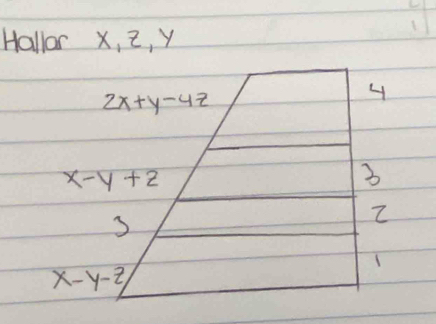 Hallar X, Z, Y
2X+y-4Z 4
X-Y+Z 3
3 2
X-Y-Z 1